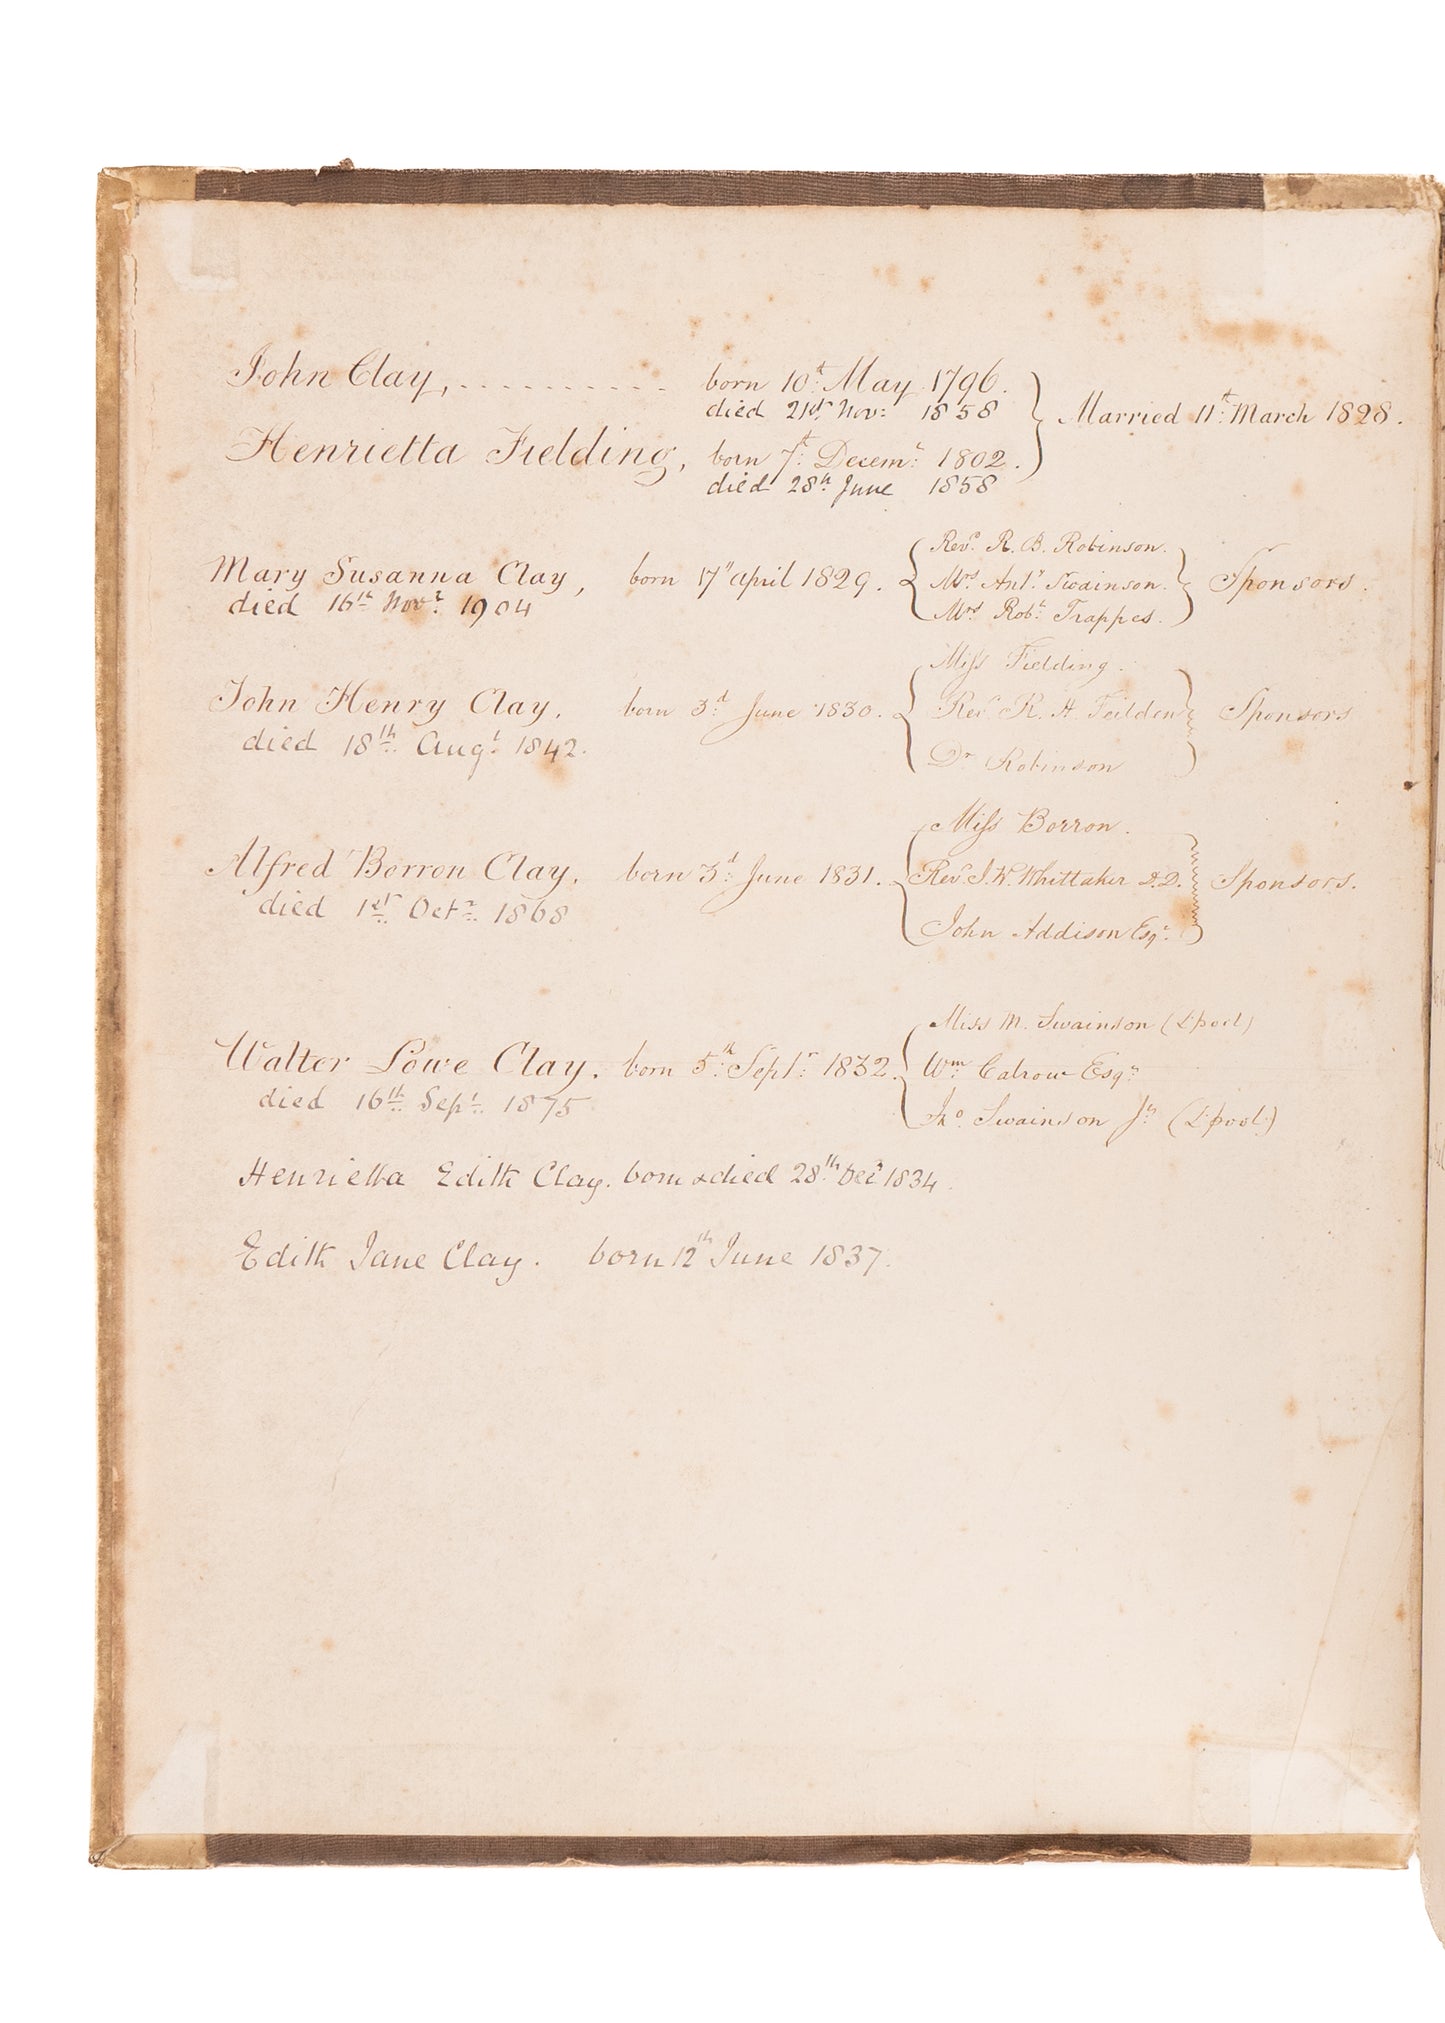 John Clay, . . . . . . . . . . . born 10th May 1796.
died 21st Nov: 1858
Married 11th March 1828.
Henrietta Fielding, born 7th Decemr 1802.
died 28th June 1858
Revd R. B. Robinson.
Mary Susanna Clay, born 17th april 1829. Mrs Anty Swainson. Sponsors.
died 16th Novr 1904
Mrs Robt Trappes.
Miss Fielding.
John Henry Clay, born 3d June 1830. Revd R. H Feilden Sponsors
died 18th Augt 1842.
Dr Robinson
Miss Borron.
Alfred Borron Clay, born 3d June 1831. Revd J. W. Whittaker D.D. Sponsors.
died 1st Octr 1868
John Addison Esqr
Miss M. Swainson (L'pool)
Walter Lowe Clay. born 5th Septr 1832. Wm Calrow Esqr
died 16th Sept 1875
Jno Swainson Jr (L'pool)
Henrietta Edith Clay. born & died 28th Decr 1834.
Edith Jane Clay. born 12th June 1837.